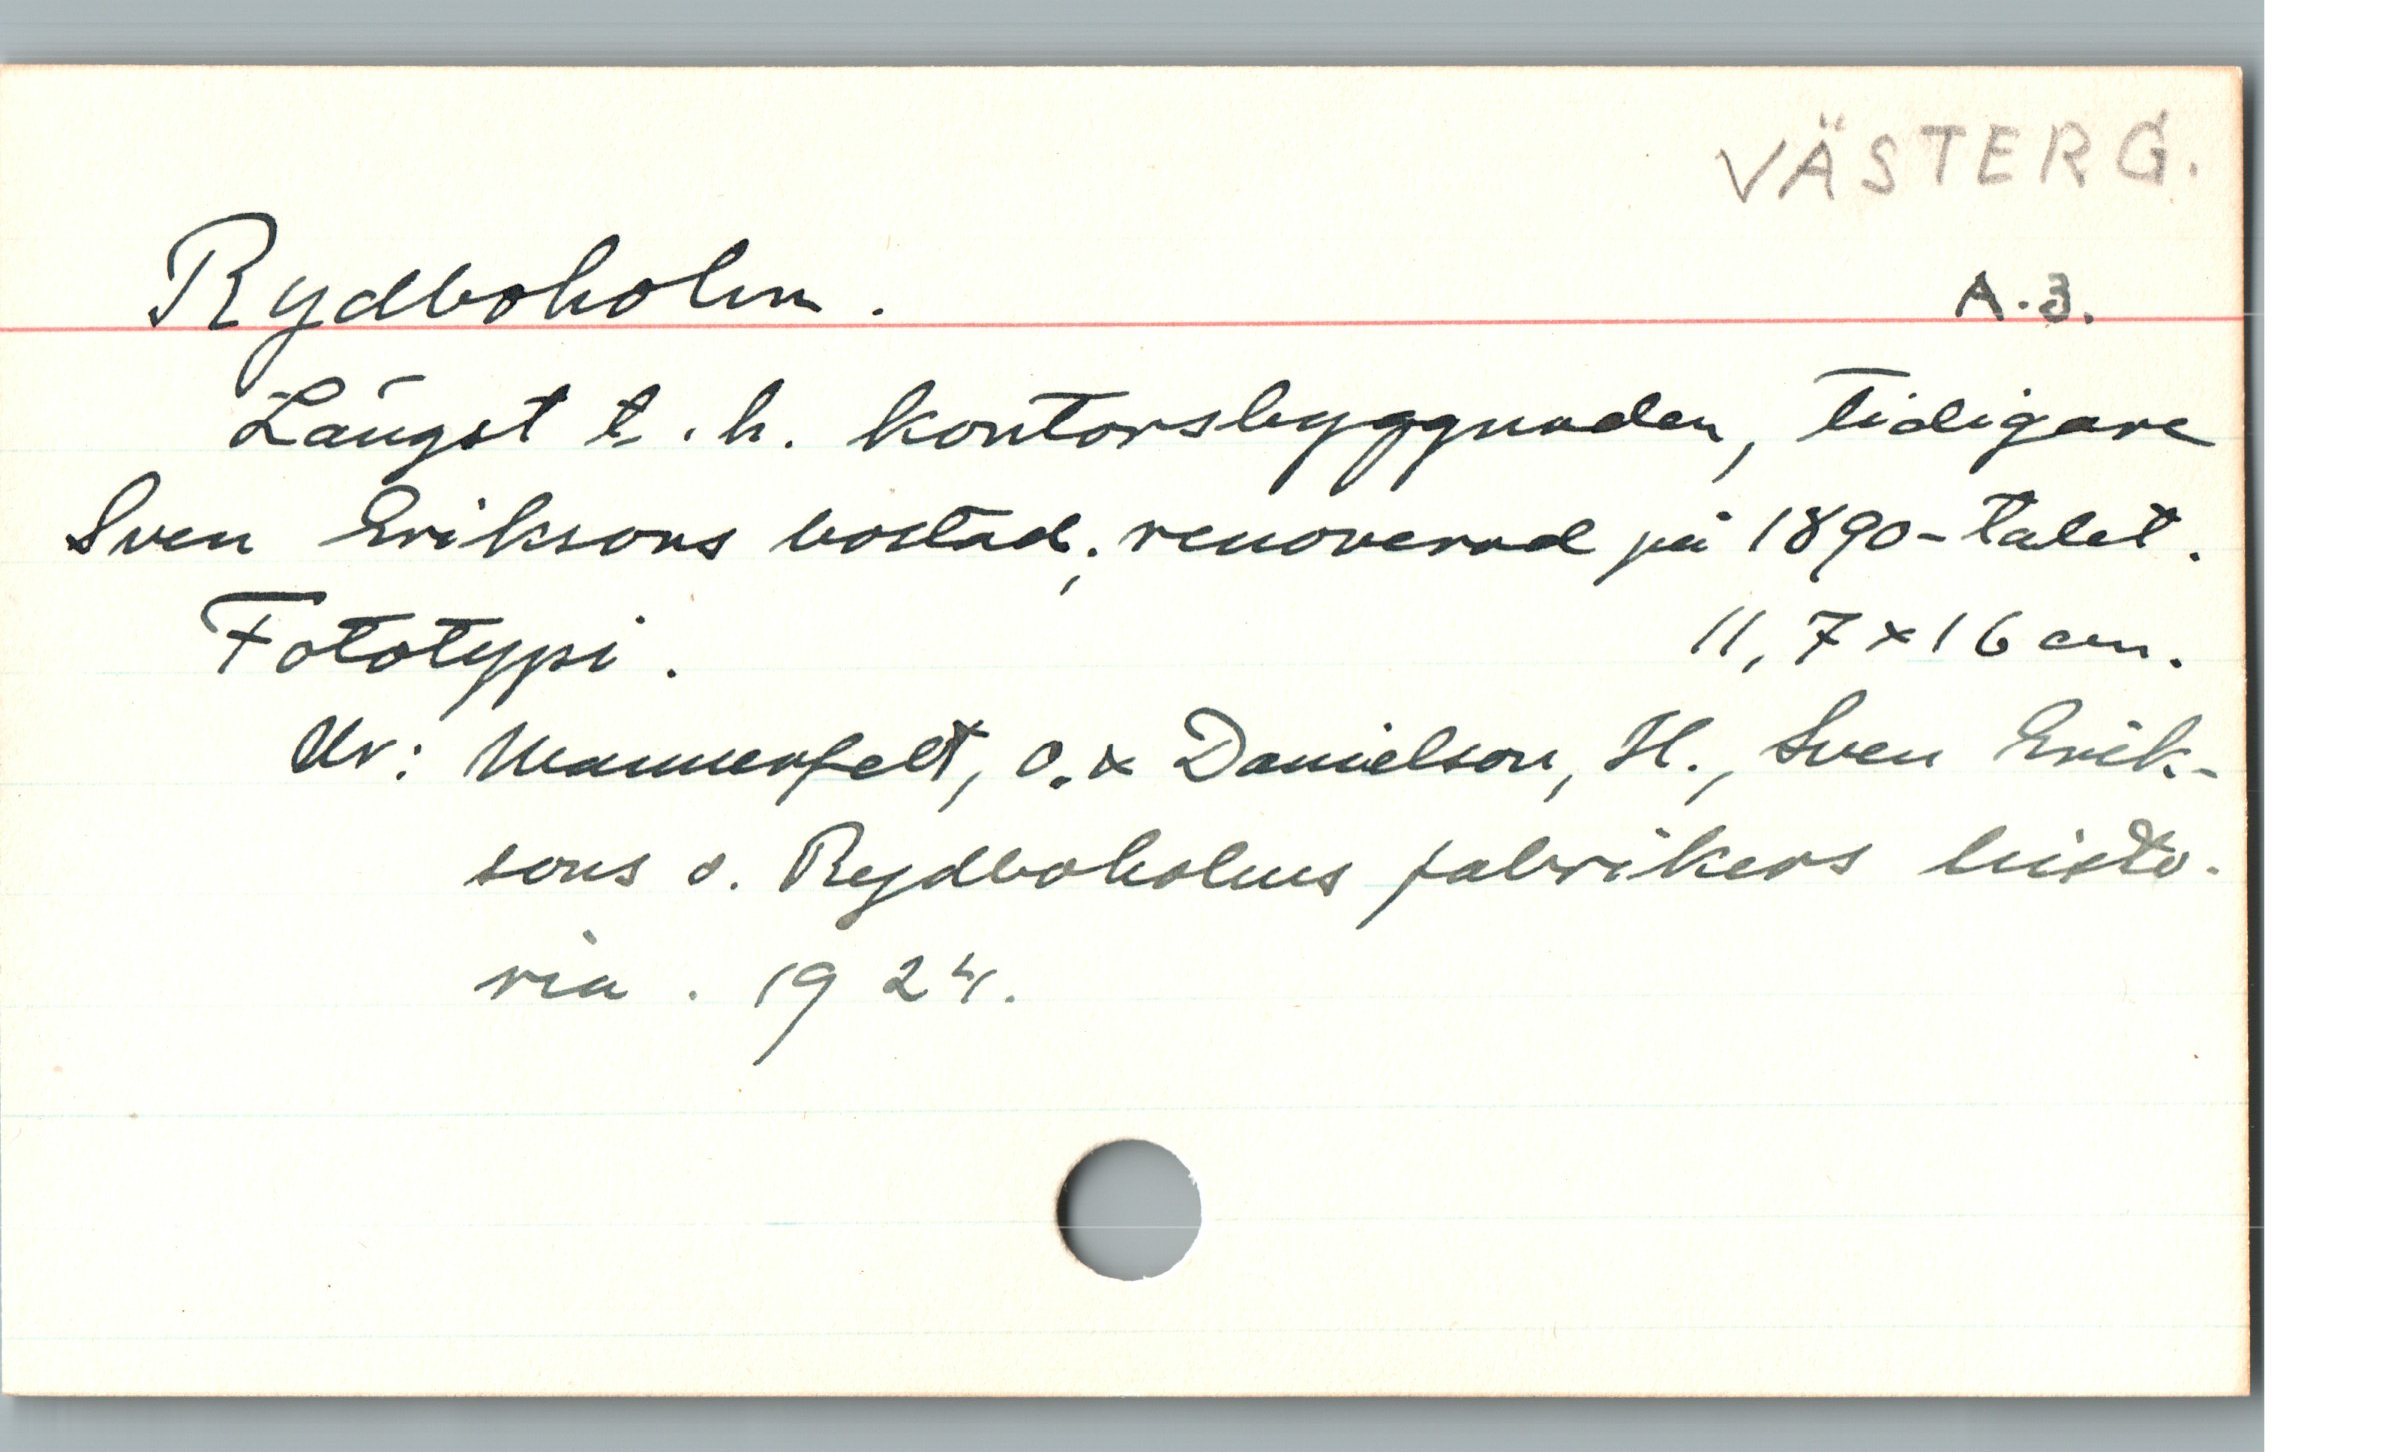 VÄSTERG.
Rydboholm. A.3.
Längst t.h. kontorsbyggnaden, tidigare
Sven Eriksons bostad; renoverad på 1890-talet.
Fototypi. 11,7 x 16 cm.
Ur: Mannerfelt, O. & Danielson, H., Sven Erik-
sons o. Rydboholms fabrikers histo-
ria. 1924.